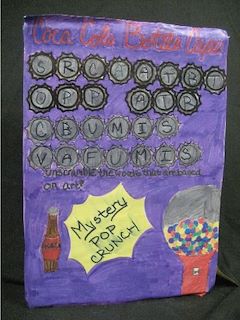 Coca Cola Bottle Caps
SRCAATBT
OPP ATR
CBUMIS
VAFUMIS
unscramble the words that are based
on art!
Mystery
POP
CRUNCH